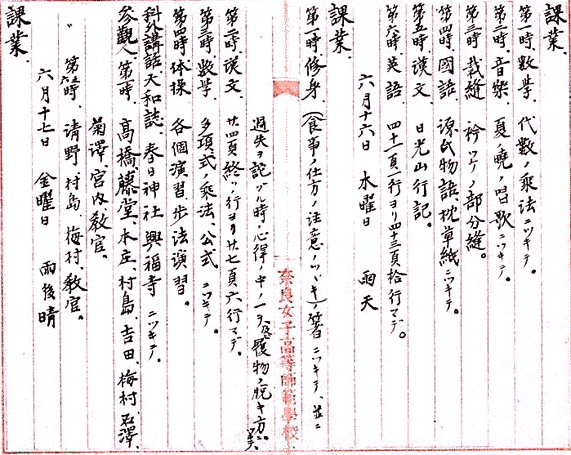 課業
第一時、数学、代数ノ乗法ニツキテ。
第二時、音楽、夏ノ曉ノ唱歌ニツキテ。
第三時、裁縫、衿ツケノ部分縫。
第四時、國語、源氏物語、枕草紙ニツキテ。
第五時、漢文、日光山行記。
第六時、英語、四十一頁一行ヨリ四十三頁拾行マデ。
六月十六日 木曜日 雨天
課業、
第一時、修身、(食事ノ仕方ノ注意ノツヾキ)箸ニツキテ、並ニ
過失ヲ記ブル時ノ心得ノ中ノ一
履物ノ脱キ方。
第二時、漢文、廿四頁終ノ行ヨリ廿七頁六行マデ。
第三時、数学、多項式ノ乗法ノ公式ニツキテ。
第四時、体操、各個演習、歩法演習。
科外講話、大和誌、春日神社興福寺ニツキテ。
参觀人第一時、高橋、藤堂、本庄、村島、吉田、梅村、石澤、
菊澤、宮内、教官。
〃 第六時、清野、村島、梅村、教官。
六月十七日 金曜日 雨後晴
課業、
奈良女子高等師範學校